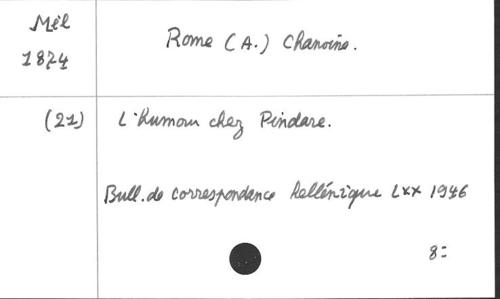 Mél
1874
Rome (A.) Chanoine.
(21)
L'humour chez Pindare.
Bull. de correspondance hellénique LXX 1946
8=